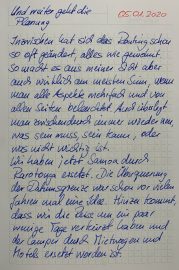 Und weiter geht die
Planung 05.01.2020
Inzwischen hat sich das Planung schon
so oft geändert, alles wie gewohnt.
So macht es aus meiner Sicht aber
auch wirklich am meisten Sinn, wenn
man alle Aspekte mehrfach und von
allen Seiten beleuchtet. Auch überlegt
man zwischendurch immer wieder neu,
was sein muss, sein kann, oder
was nicht wichtig ist.
Wir haben jetzt Samoa durch
Rarotonga ersetzt. Die Überquerung
der Datumsgrenze war schon vor vielen
Jahren mal eine Idee. Hinzu kommt,
dass wir die Reise um ein paar
wenige Tage verkürzt haben und
der Camper durch Mietwagen und
Motels ersetzt worden ist.